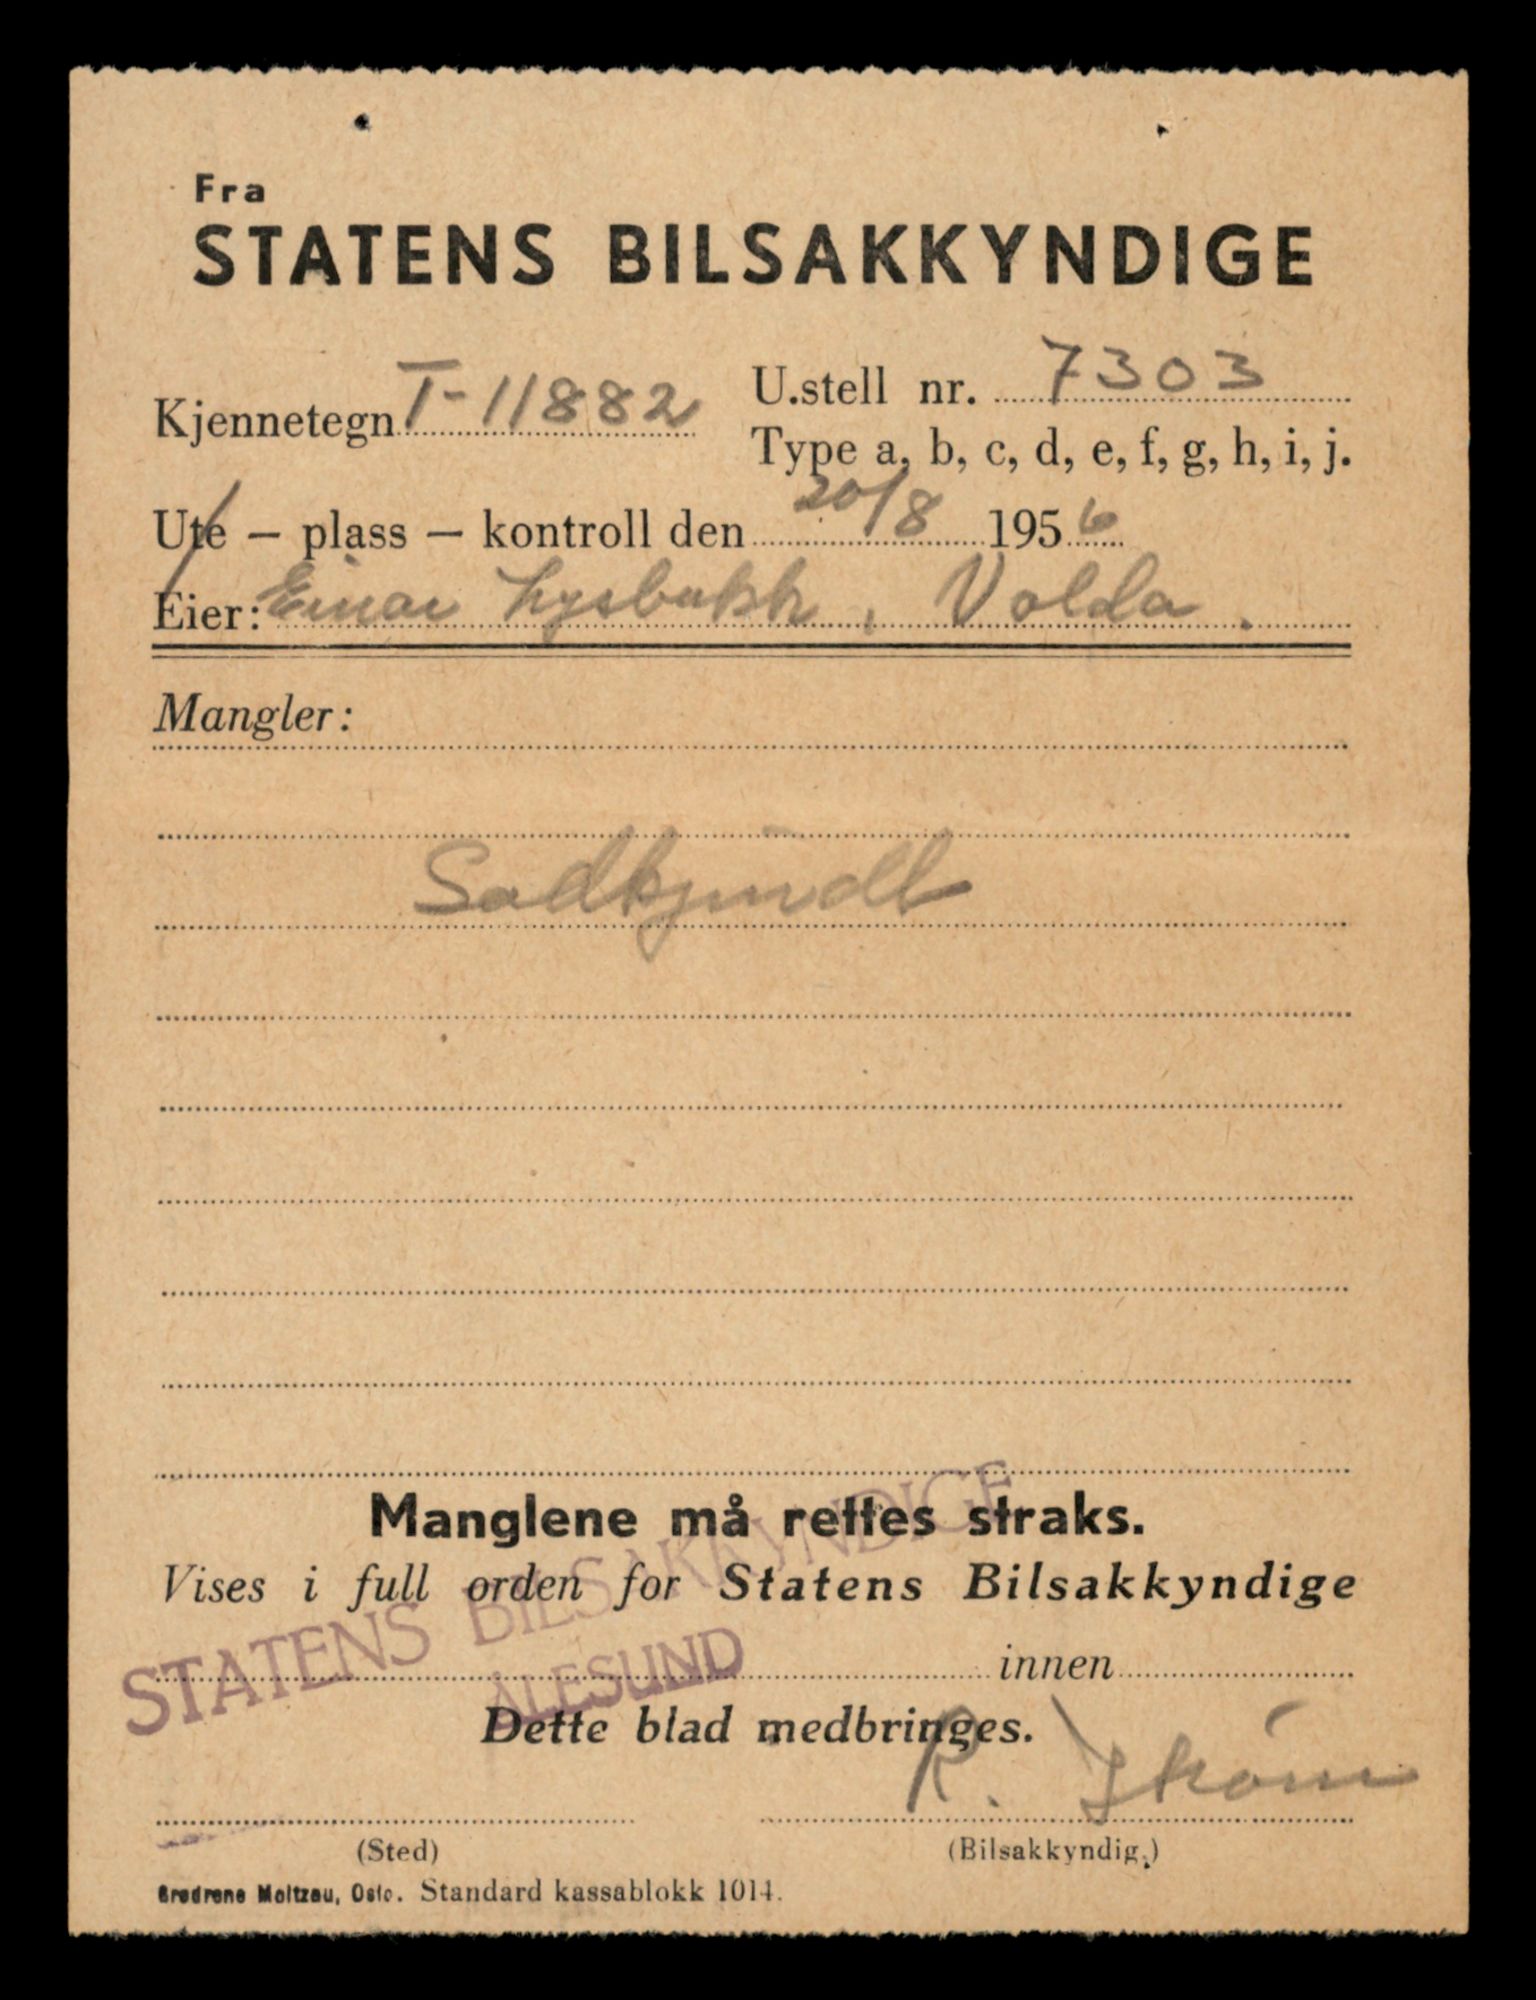 Fra
STATENS BILSAKKYNDIGE
Kjennetegn T-11882
U.stell nr. 7303
Type a, b, c, d, e, f, g, h, i, j.
Ute — plass — kontroll den 20/8 1956
Eier: Einar Lysbakk, Volda.
Mangler:
Godkjendt
Manglene må rettes straks.
Vises i full orden for Statens Bilsakkyndige
innen
STATENS BILSAKKYNDIGE
ÅLESUND
Dette blad medbringes.
R.
(Sted)
(Bilsakkyndig.)
Brødrene Moltzau, Oslo. Standard kassablokk 1014.